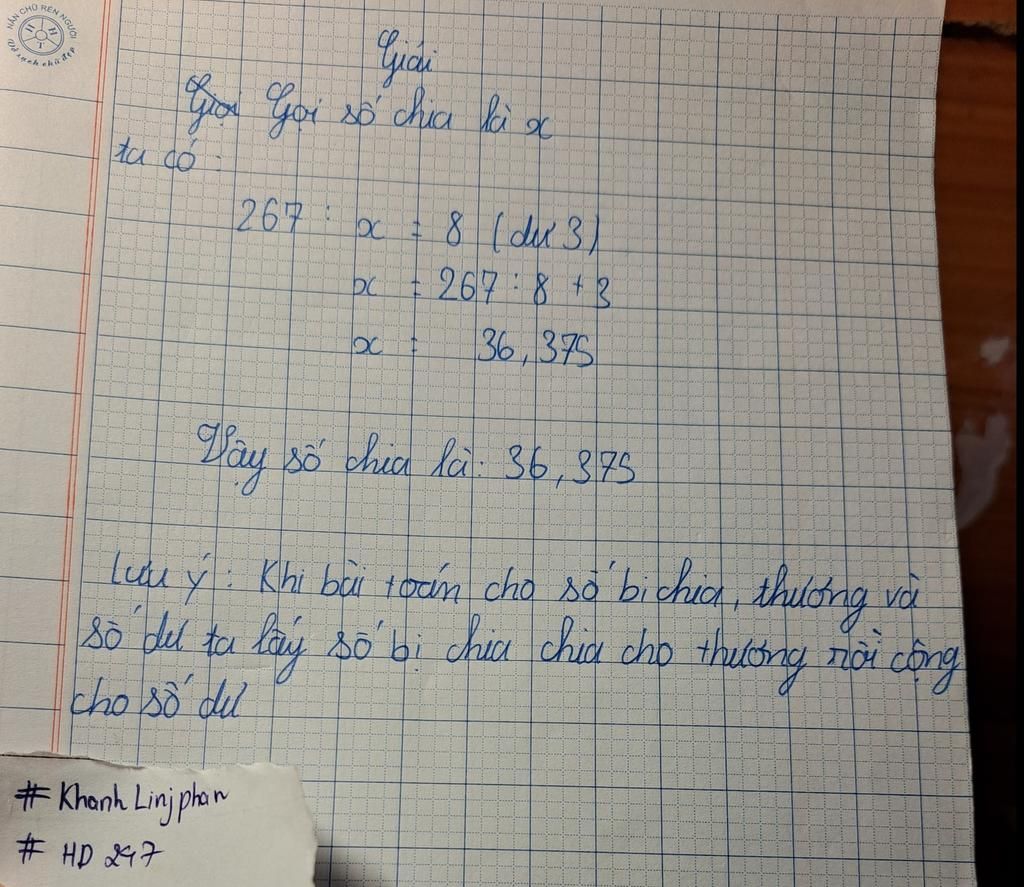 NẮN CHỮ RÈN NGƯỜI
H H T
Vở sạch chữ đẹp
Giải
Gọi số chia là x
ta có:
267 : x = 8 (dư 3)
x = 267 : 8 + 3
x = 36,375
Vậy số chia là: 36,375
Lưu ý: Khi bài toán cho số bị chia, thương và
số dư ta lấy số bị chia chia cho thương rồi cộng
cho số dư
# Khanh Linjphan
# HD 247